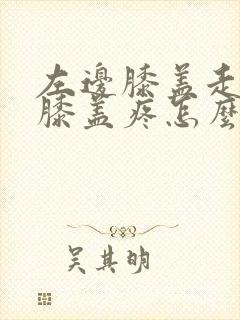 左邊膝盖走
膝盖疼怎麼
吴其明